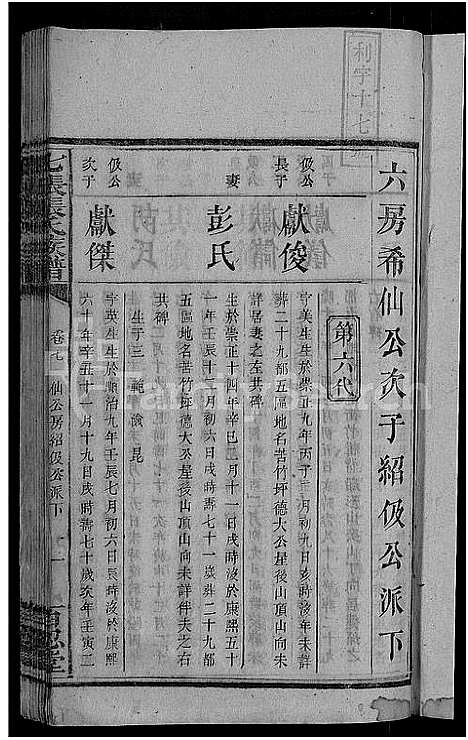 利字十七
六房希仙公次子紹伋公派下
第六代
伋公
長子
獻俊
字美生生於崇正九年丙子三月初九日亥時沒年未詳
葬二十九都五區地名苦竹坪德大公星後山頂山向未
詳居妻之左共碑
妻
彭氏
生於崇正十四年辛巳三月十一日戌時沒於康熙五十
一年壬辰十二月初六日戌時壽七十一歲葬二十九都
五區地名苦竹坪德大公星後山頂山向未詳伴夫之右
共碑
生子三
昆
伋公
次子
獻傑
字英生生於順治九年壬辰七月初六日辰時沒於康熙
六十年辛丑十一月十九日戌時壽七十歲次年壬寅二
七張張氏族譜
卷七
仙公房紹伋公派下
一
百忍堂